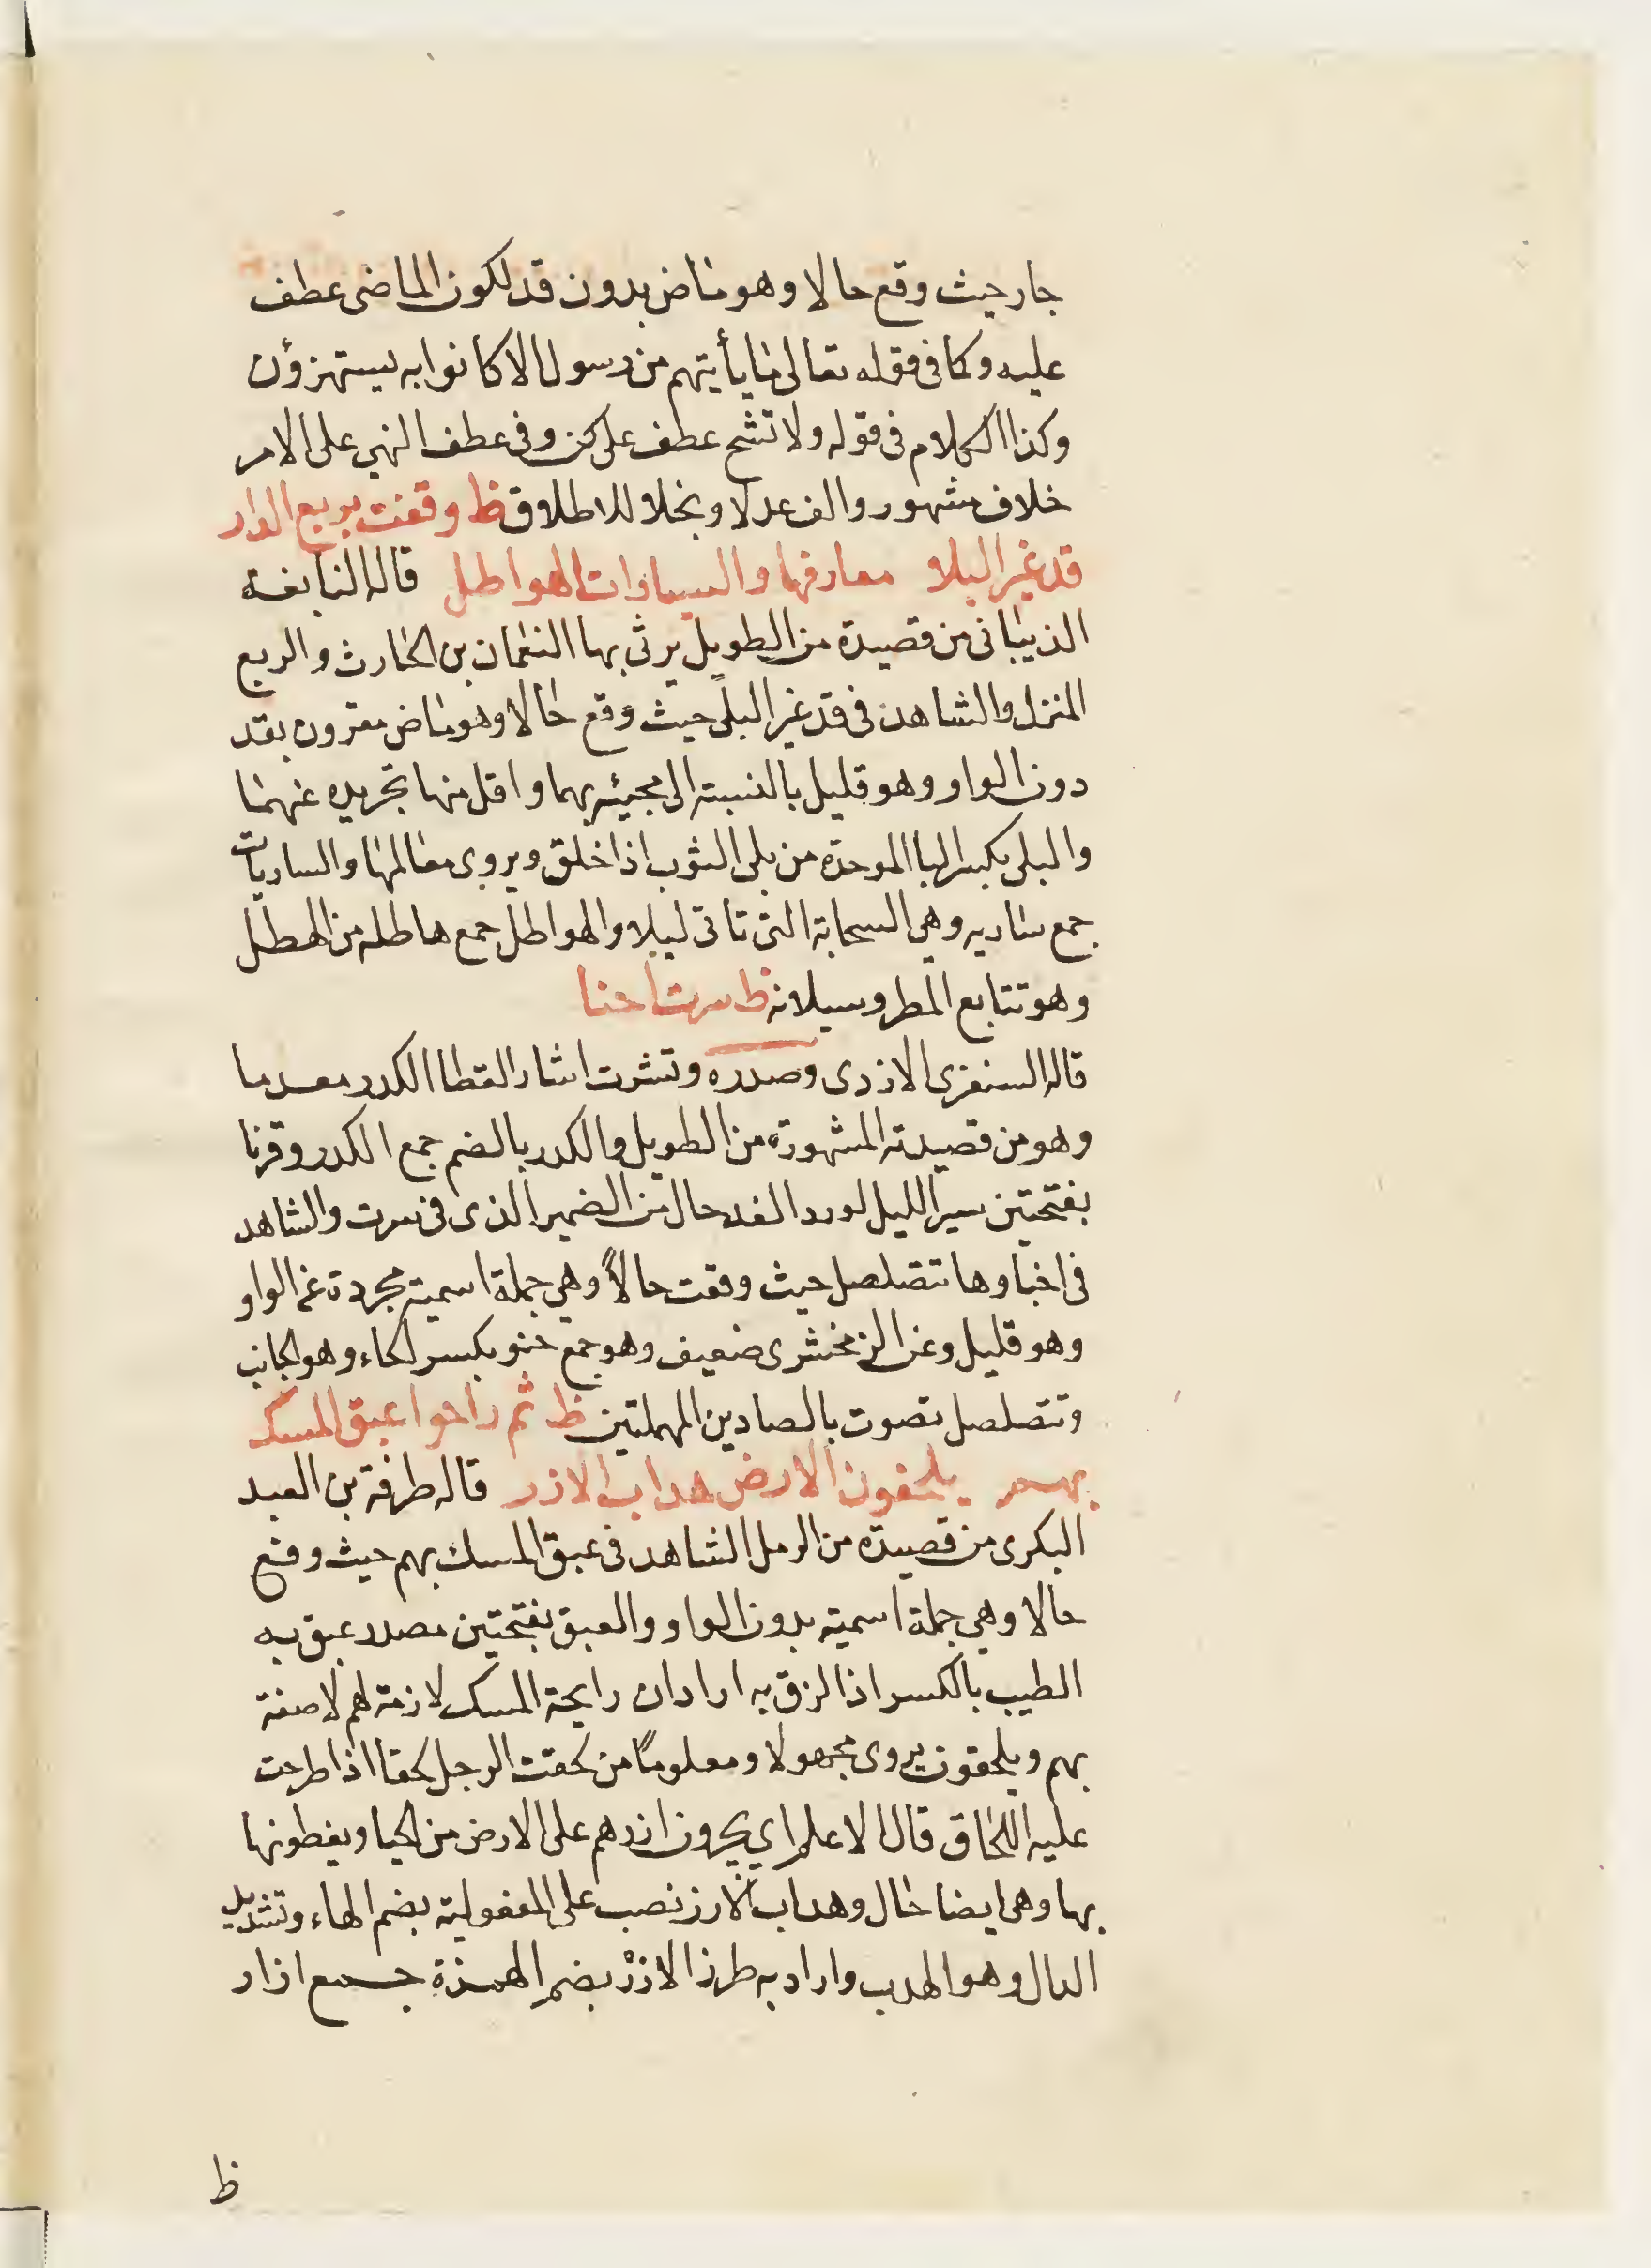 جار حيث وقع حالا وهو ماض بدون قد لكون الماضى عطف
عليه وكما فى قوله تعالى ما يأتيهم من رسول الا كانوا به يستهزؤن
وكذا الكلام فى قوله ولا تشح عطف على كن وفى عطف النهى على الامر
خلاف مشهور والف عدلا وبخلا للاطلاق ظ وقفت بربع الدار
قد غير البلا معارفها والساريات الهواطل قاله النابغة
الذبيانى من قصيدة من الطويل يرثى بها النعمان بن الحارث والربع
المنزل والشاهد فى قد غير البلى حيث وقع حالا وهو ماض مقرون بقد
دون الواو وهو قليل بالنسبة الى مجيئه بهما واقل منها تجريده عنهما
والبلى بكسر البا الموحدة من بلى الثوب اذا خلق ويروى معالمها والساريات
جمع سارية وهى السحابة التى تاتى ليلا والهواطل جمع هاطله من الهطل
وهو تتابع المطر وسيلانه ظ سرت احنا
قاله السنفرى الازدى وصدره وتشرب اسار القطا الكدر بعدما
وهو من قصيدته المشهورة من الطويل والكدر بالضم جمع الكدر وقرنا
بفتحتين سير الليل لورد الغد حال من الضمير الذى فى سرت والشاهد
فى احناوها تتصلصل حيث وقعت حالاً وهى جملة اسمية مجردة عن الواو
وهو قليل وعن الزمخشرى ضعيف وهو جمع حنو بكسر الحاء وهو الجانب
وتتصلصل تصوت بالصادين المهملتين ظ ثم راحوا عبق المسك
بهم يلحفون الارض هداب الازر قاله طرفة بن العبد
البكرى من قصيدة من الرمل الشاهد فى عبق المسك بهم حيث وقع
حالا وهى جملة اسمية بدون الواو والعبق بفتحتين مصدر عبق به
الطيب بالكسر اذا لزق به اراد ان رايحة المسك لازمة لهم لاصقة
بهم ويلحقون يروى مجهولا ومعلوما من لحقت الرجل لحقا اذا طرحت
عليه اللحاق قال الاعلم اي يجرون ازرهم على الارض من الحيا ويغطونها
بها وهى ايضا حال وهداب الازر نصب على المفعولية بضم الهاء وتشديد
الدال وهو الهدب واراد به طرز الازر بضم الهمزة جمع ازار
ظ